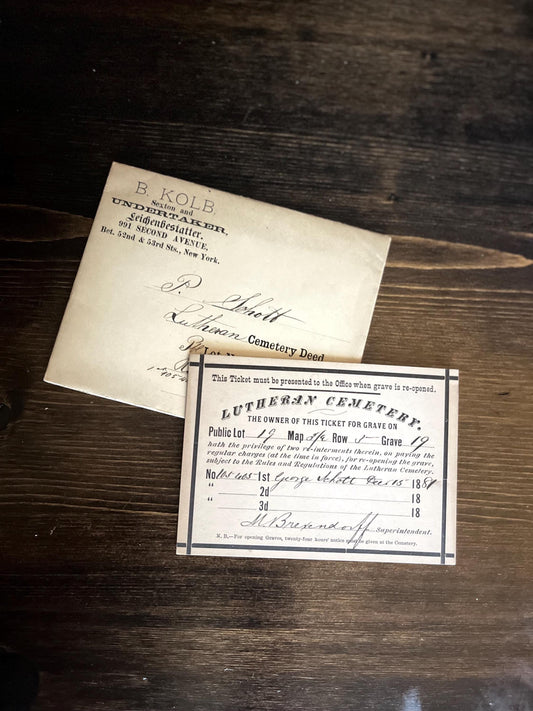 B. KOLB,
Sexton and
UNDERTAKER,
Leichenbestatter,
991 SECOND AVENUE,
Bet. 52nd & 53rd Sts., New York.
P. Schott
Lutheran Cemetery Deed
This Ticket must be presented to the Office when grave is re-opened.
LUTHERAN CEMETERY.
THE OWNER OF THIS TICKET FOR GRAVE ON
Public Lot 19 Map Row 5 Grave 19
hath the privilege of two re-interments therein, on paying the
regular charges (at the time in force), for re-opening the grave,
subject to the Rules and Regulations of the Lutheran Cemetery.
No 105405 1st George Schott Dec 15 1881
" 2d 18
" 3d 18
Superintendent.
N. B.—For opening Graves, twenty-four hours' notice must be given at the Cemetery.